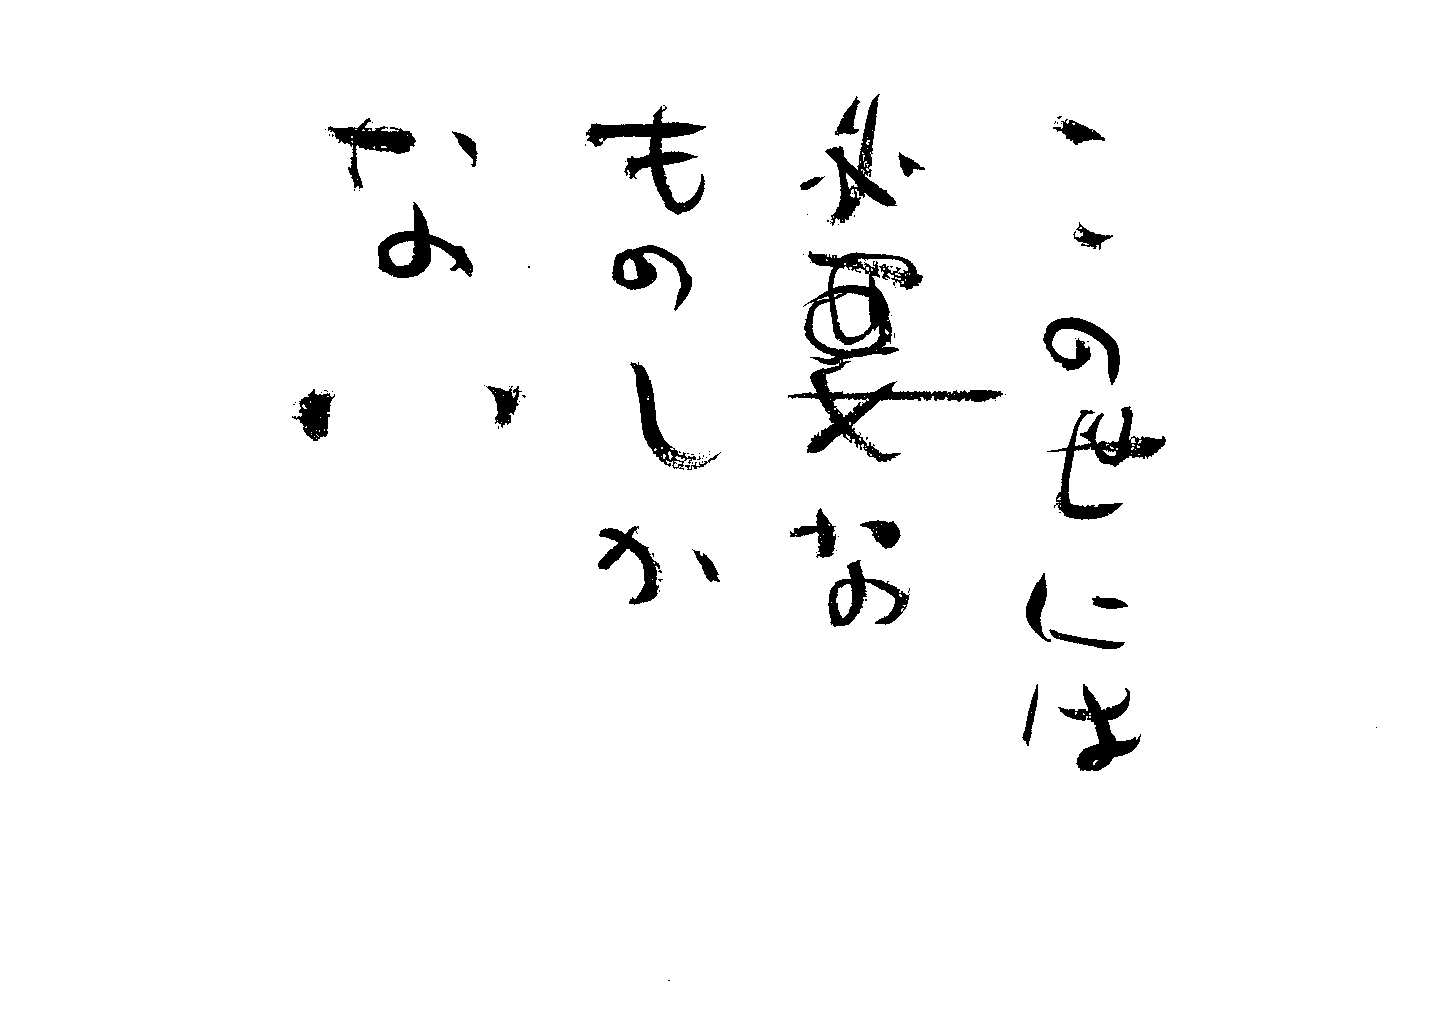 このせには
必要な
ものしか
ない